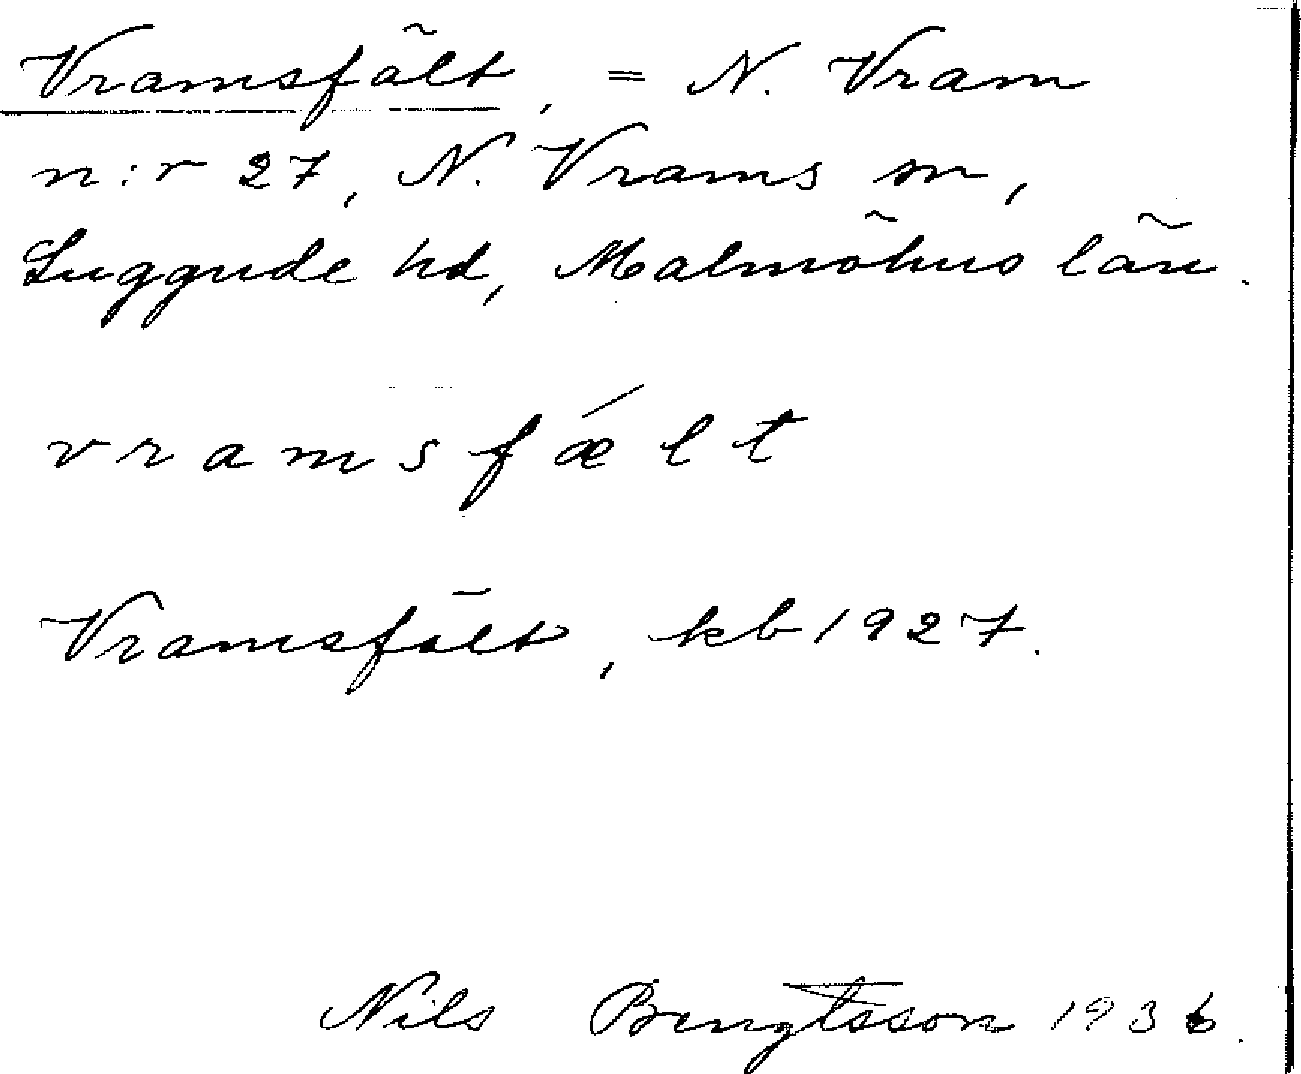 Vramsfält, = N. Vram
n:r 27, N. Vrams sn,
Luggude hd, Malmöhus län.
vramsfǽlt
Vramsfält, kb 1927.
Nils Bengtsson 1936.